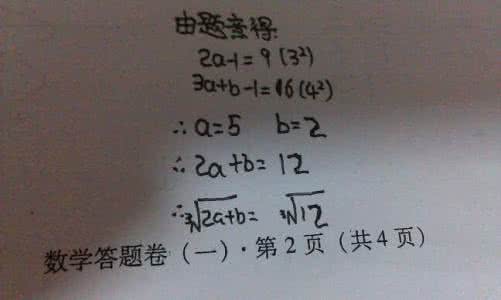 由题意得
2a-1=9(3²)
3a+b-1=16(4²)
∴a=5 b=2
∴2a+b=12
∴∛2a+b=∛12
数学答题卷(一)·第2页(共4页)